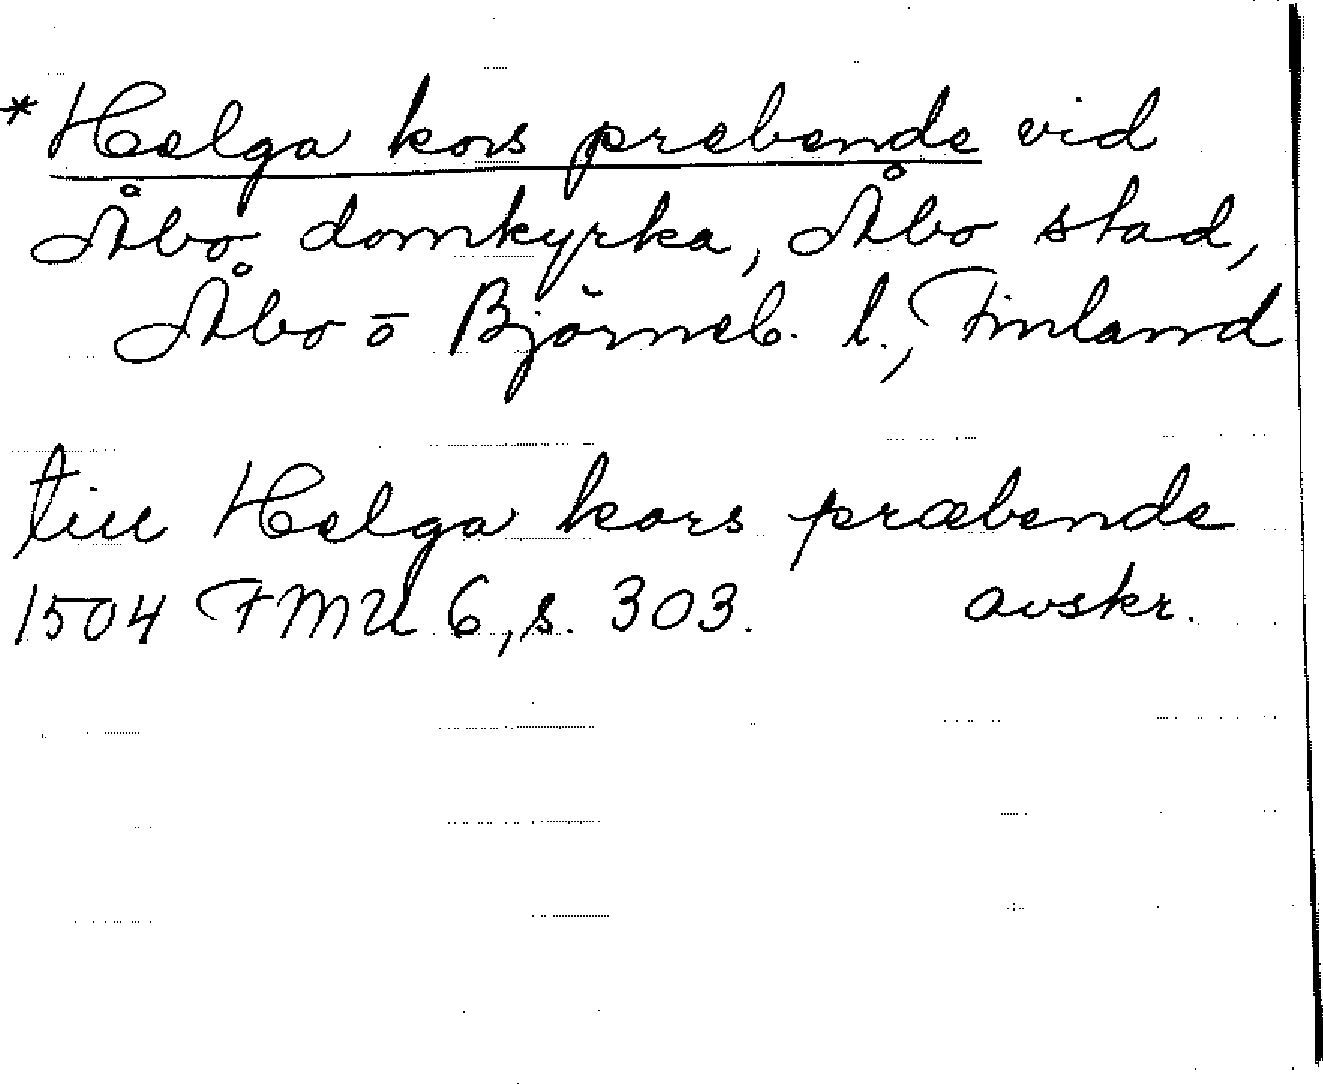 *Helga kors prebende vid
Åbo domkyrka, Åbo stad,
Åbo o Björneb. l., Finland
till Helga kors præbende
1504 FMU 6, s. 303. avskr.